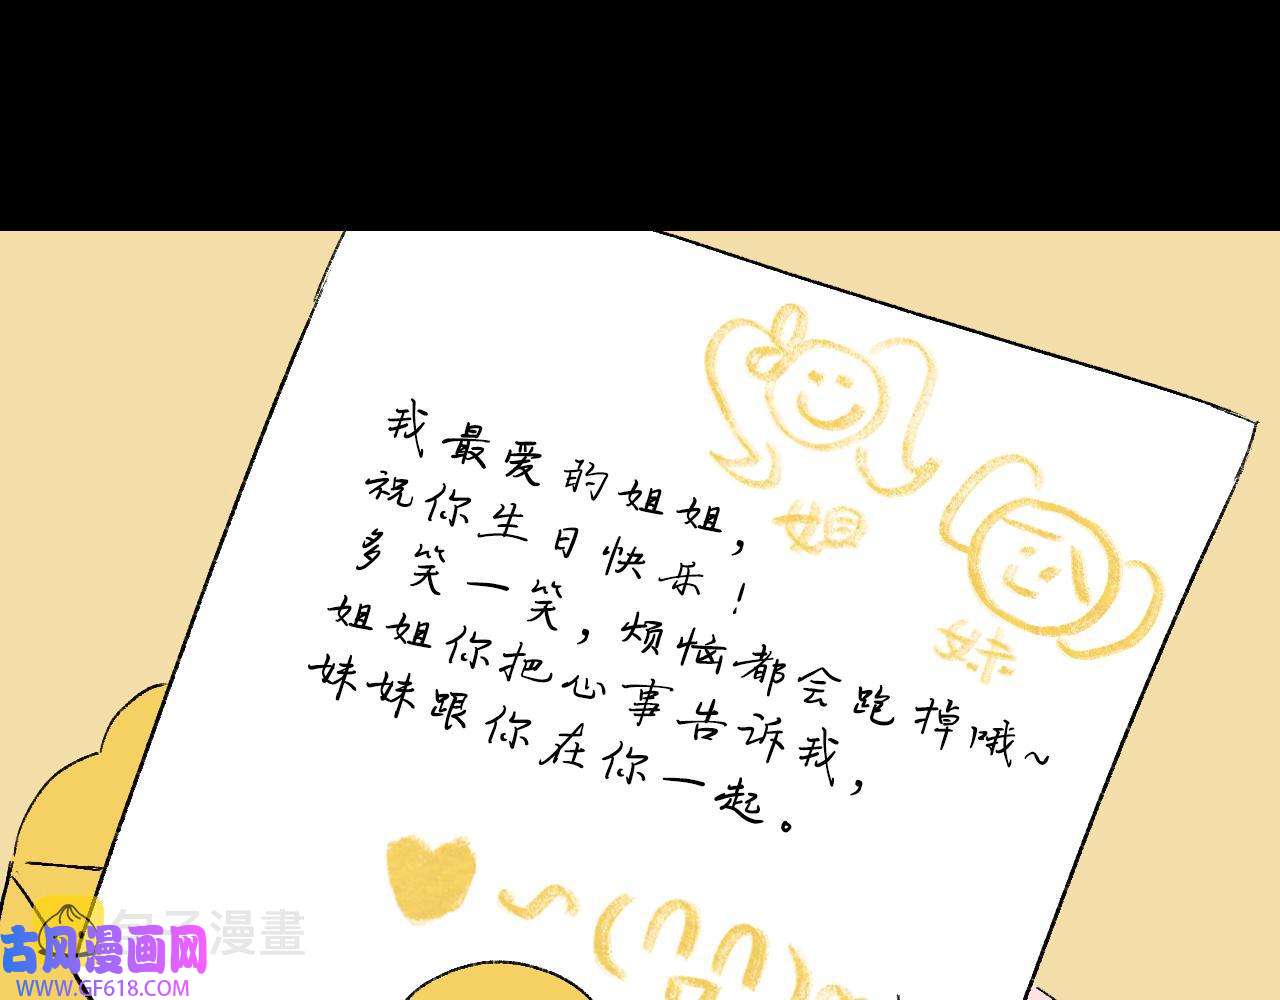 姐
妹
我最爱的姐姐，
祝你生日快乐！
多笑一笑，烦恼都会跑掉哦~
姐姐你把心事告诉我，
妹妹跟你在你一起。
包子漫畫
古风漫画网
WWW.GF618.COM